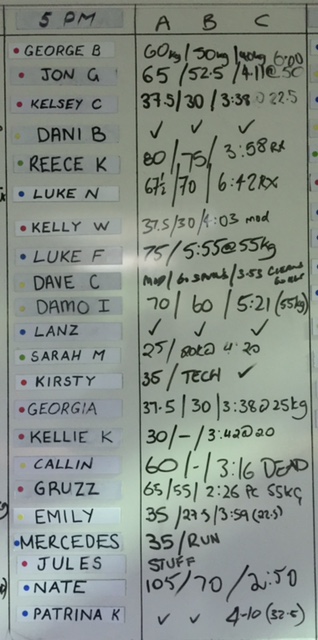 5 PM A B C
GEORGE B 60kg / 50kg / 6:00
JON G 65 / 52.5 / 4:11 @ 50
KELSEY C 37.5 / 30 / 3:38 @ 22.5
DANI B ✓ ✓ ✓
REECE K 80 / 75 / 3:58 RX
LUKE N 67½ / 70 / 6:42 RX
KELLY W 37.5 / 30 / 4:03 mod
LUKE F 75 / 5:55 @ 55kg
DAVE C / 3:53
DAMO I 70 / 60 / 5:21 (55kg)
LANZ ✓ ✓ ✓
SARAH M 25 / 4:20
KIRSTY 35 / TECH ✓
GEORGIA 37.5 / 30 / 3:38 @ 25kg
KELLIE K 30 / - / 3:42 @ 20
CALLIN 60 / - / 3:16 DEAD
GRUZZ 65 / 55 / 2:26 PC 55kg
EMILY 35 / 27.5 / 3:59 (22.5)
MERCEDES 35 / RUN
JULES STUFF
NATE 105 / 70 / 2:50
PATRINA K ✓ ✓ 4-10 (32.5)